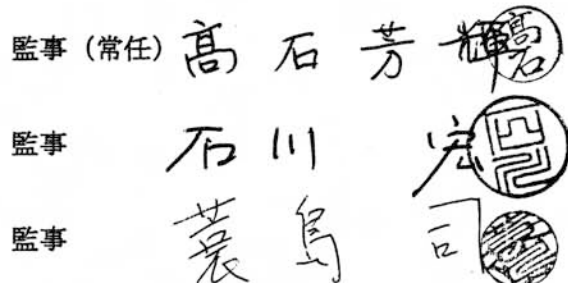 監事（常任）髙石芳輝 髙石
監事 石川宏
監事 蓑島司